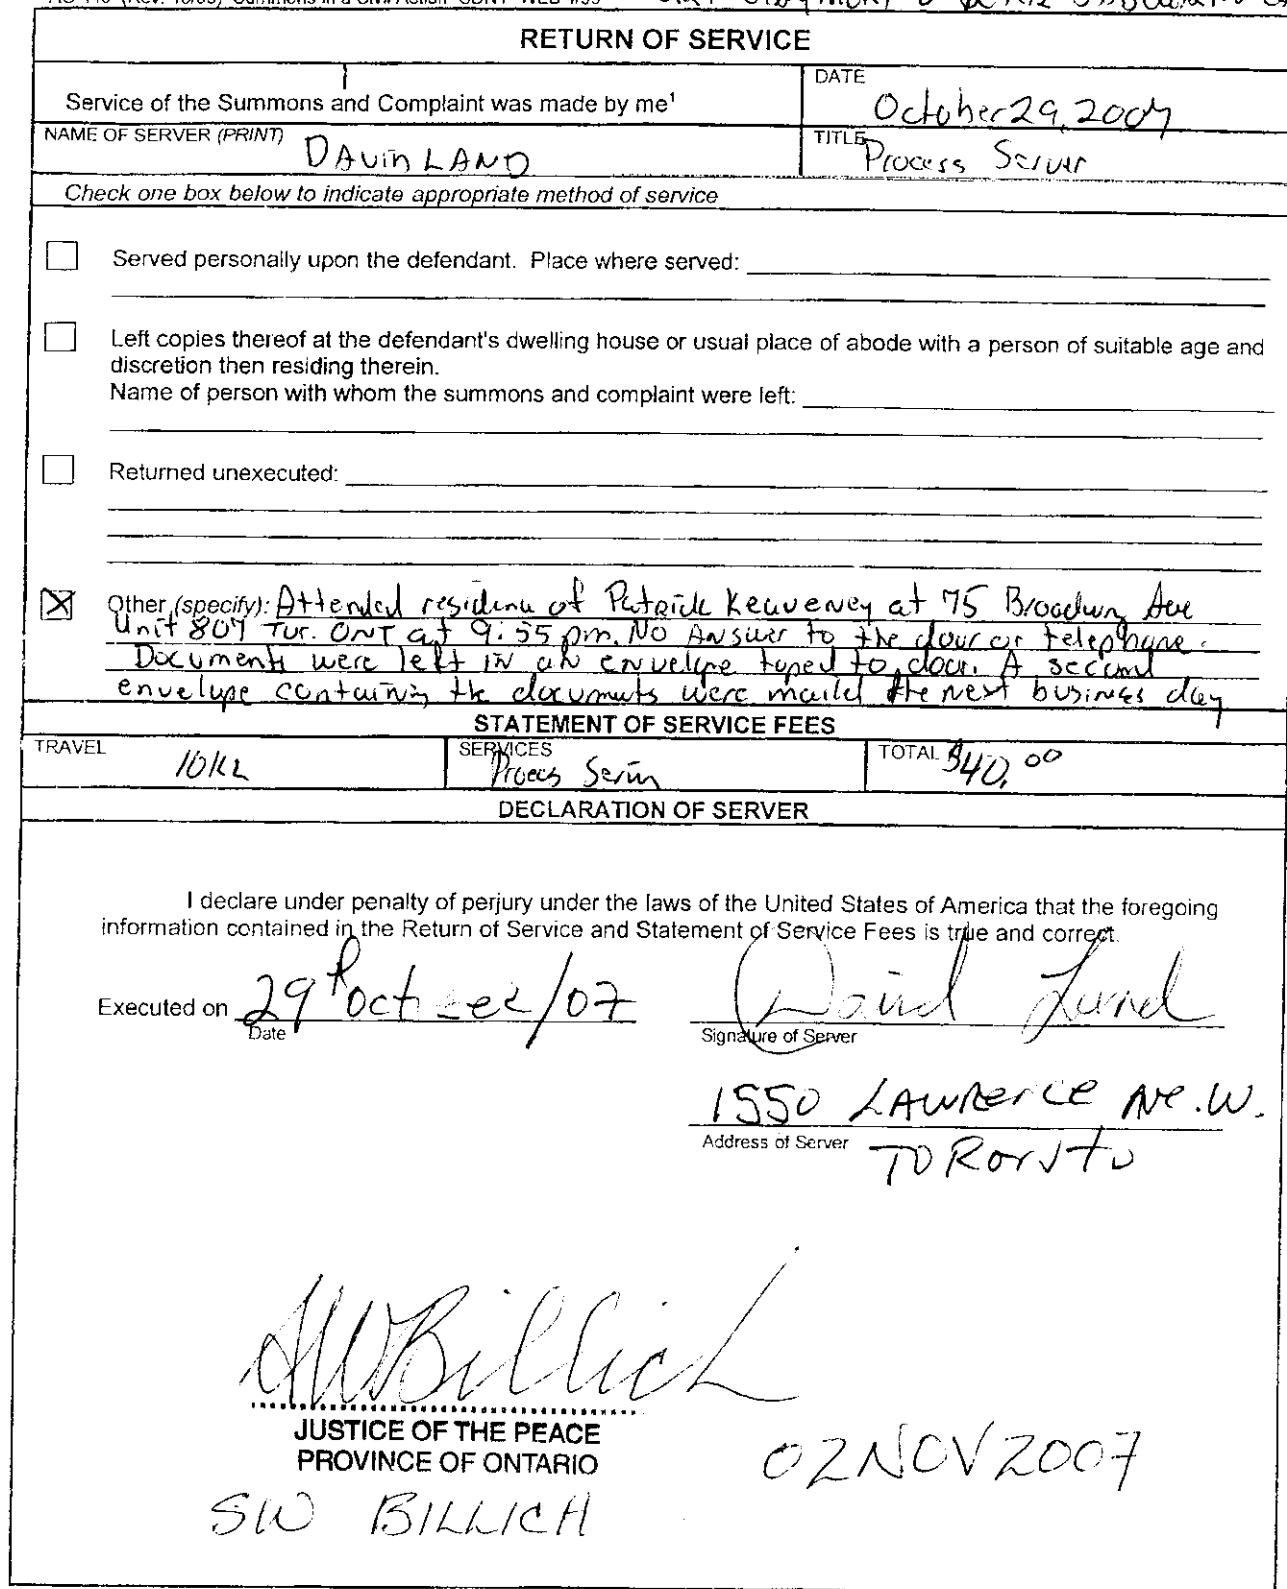 AO 440 (Rev. 10/93) Summons in a Civil Action
RETURN OF SERVICE
Service of the Summons and Complaint was made by me¹
DATE
October 29, 2007
NAME OF SERVER (PRINT)
DAVID LAND
TITLE
Process Server
Check one box below to indicate appropriate method of service
Served personally upon the defendant. Place where served:
Left copies thereof at the defendant's dwelling house or usual place of abode with a person of suitable age and
discretion then residing therein.
Name of person with whom the summons and complaint were left:
Returned unexecuted:
Other (specify): Attended residence of Patrick Keaveney at 75 Broadway Ave
Unit 807 Tor. ONT at 9:55 pm. No Answer to the door or telephone.
Documents were left in an envelope taped to door. A second
envelope containing the documents were mailed the next business day
STATEMENT OF SERVICE FEES
TRAVEL
SERVICES
Process Serving
TOTAL
$40.00
DECLARATION OF SERVER
I declare under penalty of perjury under the laws of the United States of America that the foregoing
information contained in the Return of Service and Statement of Service Fees is true and correct.
Executed on 29th October/07
Date
David Land
Signature of Server
1550 LAWRENCE Ave. W.
Address of Server
TORONTO
SWBillich
JUSTICE OF THE PEACE
PROVINCE OF ONTARIO
02 NOV 2007
SW BILLICH